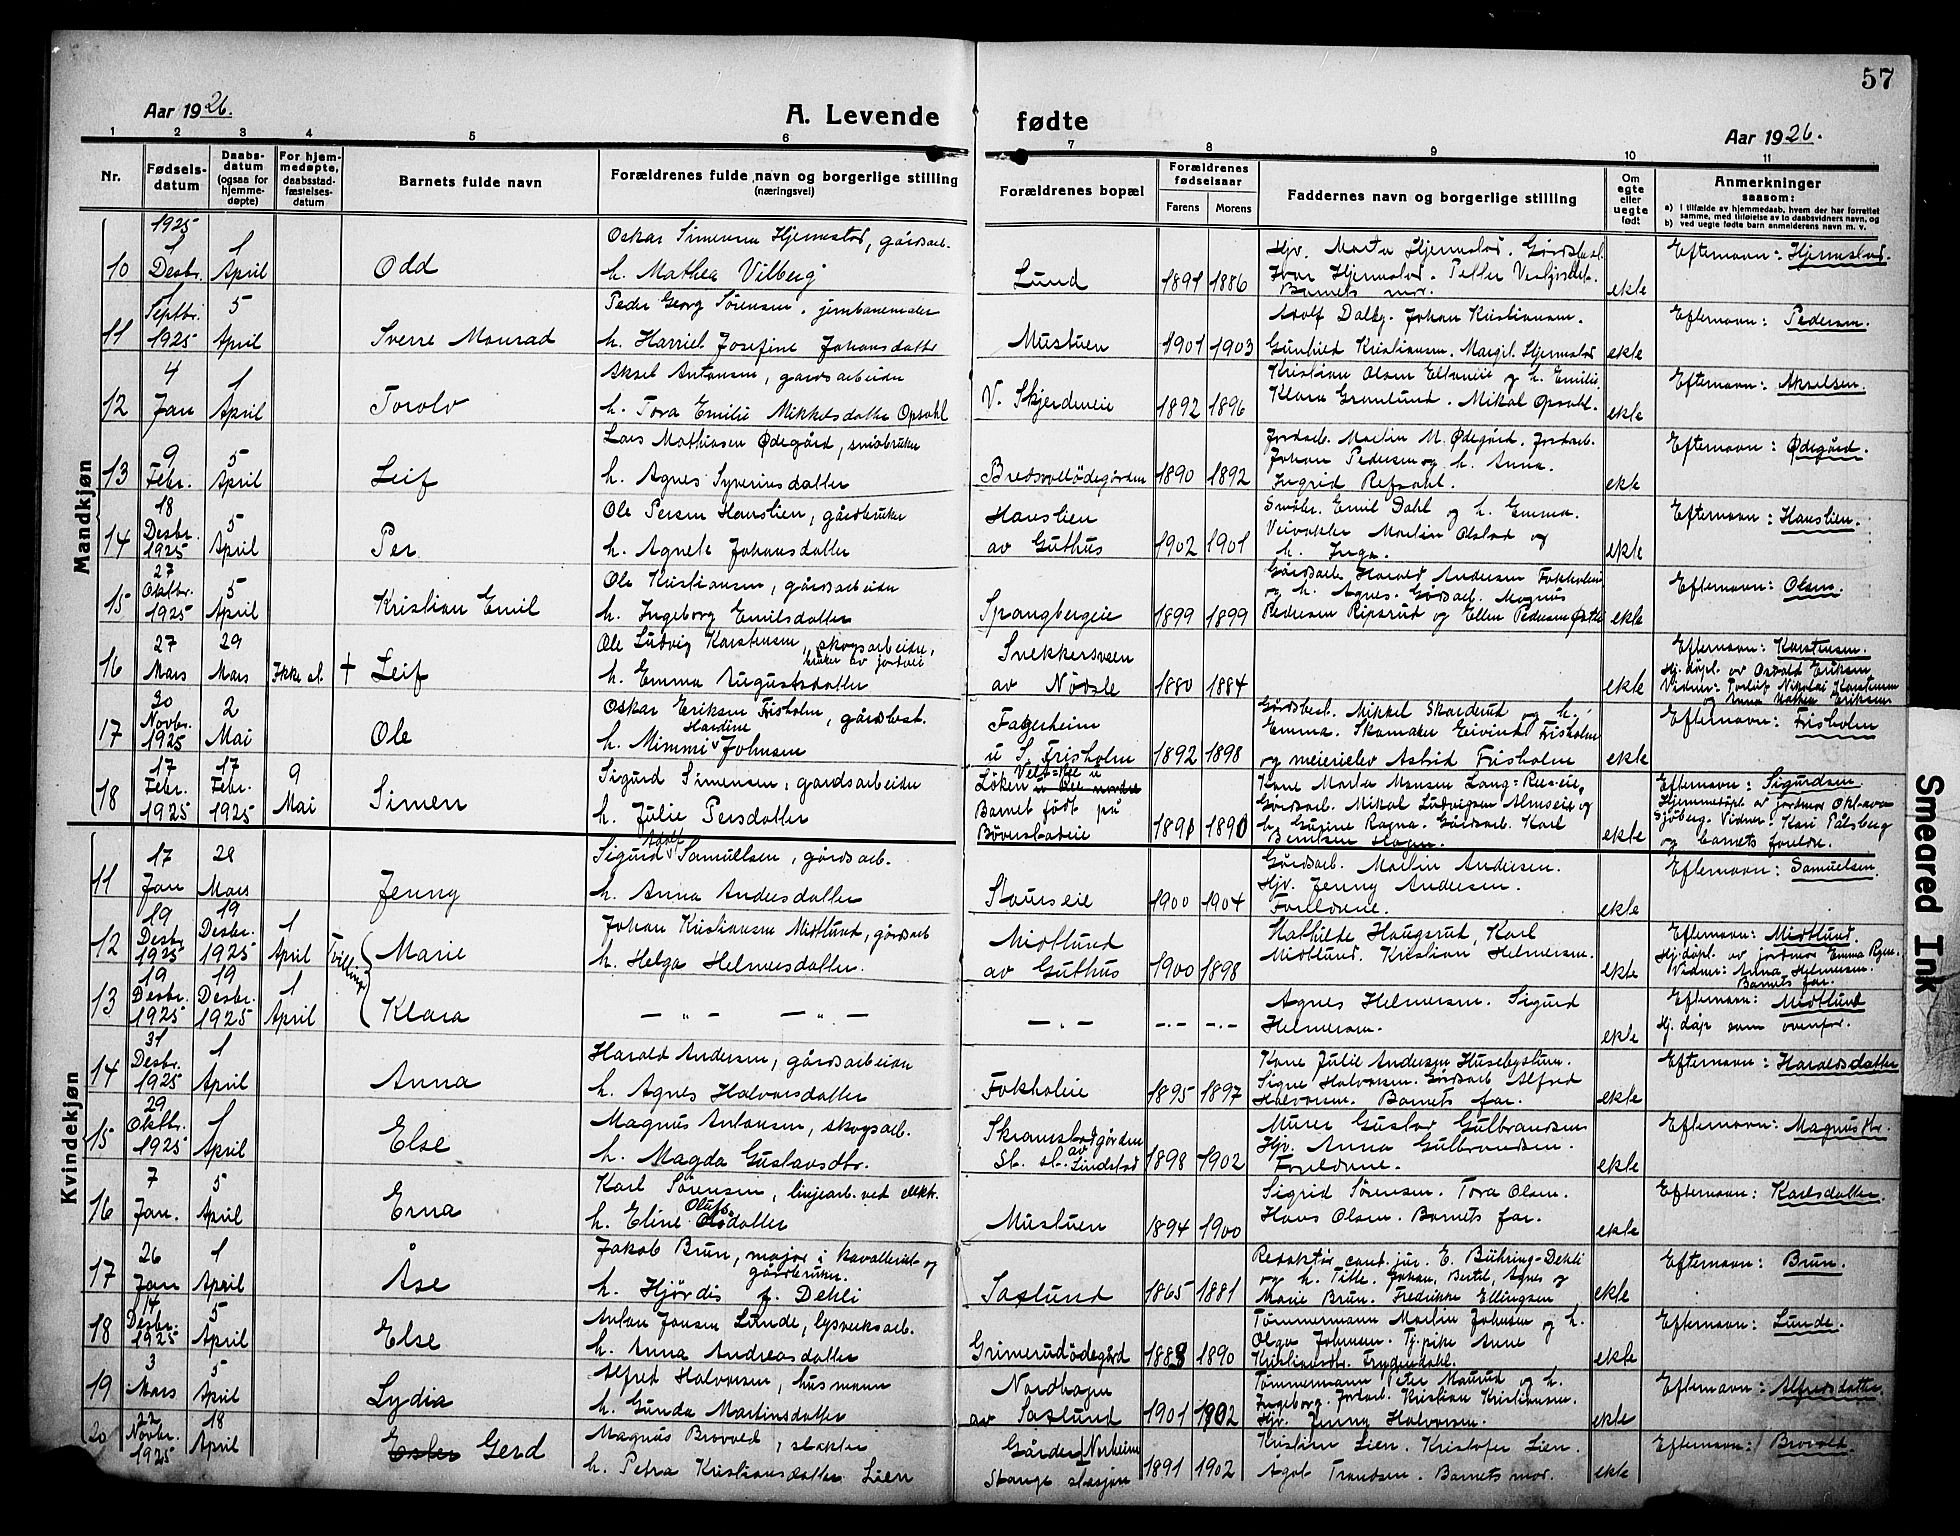 57
Aar 1926.
A. Levende
fødte
Aar 1926.
1 2 3 4 5 6 7 8 9 10 11
Nr.
Fødsels-
datum
Daabs-
datum
(ogsaa for
hjemme-
døpte)
For hjem-
medøpte,
daabsstad-
fæstelses-
datum
Barnets fulde navn
Forældrenes fulde navn og borgerlige stilling
(næringsvei)
Forældrenes bopæl
Forældrenes
fødselsaar
Farens
Morens
Faddernes navn og borgerlige stilling
Om
egte
eller
uegte
født
Anmerkninger
saasom:
a) i tilfælde av hjemmedaab, hvem der har forrettet
samme, med tilføielse av to daabsvidners navn, og
b) ved uegte fødte barn anmelderens navn m. v.
Mandkjøn
10
1925
1
Desbr.
1
April
Odd
Oskar Simensen Hjemstad, gårdsarb.
h. Mathea Vilberg
Lund
1891 1886
Hjv. Marta Hjemstad.
Ivar Hjemstad. Petter
Barnets mor.
ekte
Efternavn: Hjemstad.
11
Septbr.
1925
5
April
Sverre Monrad
Peder Georg Sørensen, jernbanemaler
h. Harriet Josefine Johansdatter
Mustuen
1901 1903
Adolf Dalby. Johan Kristiansen.
Gunhild Kristiansen. Margit Hjemstad
ekte
Efternavn: Pedersen.
12
4
Jan
1
April
Torolv
Aksel Antonsen, gårdsarbeider
h. Tora Emilie Mikkelsdatter Opsahl
V. Skjerdeneie
1892 1896
Kristian Olsen og h. Emilie.
Klara Granlund. Mikal Opsahl.
ekte
Efternavn: Akselsen.
13
9
Febr.
5
April
Leif
Lars Mathiasen Ødegård, småbruker
h. Agnes Syverinsdatter
Bredsvollødegården
1890 1892
Jordarb. Martin M. Ødegård. Jordarb.
Johan Pedersen og h. Anna.
Ingrid Refsahl.
ekte
Efternavn: Ødegård.
14
18
Desbr.
1925
5
April
Per
Ole Persen Hanslien, gårdbruker
h. Agnete Johansdatter
Hanslien
av Guthus
1902 1901
Småbr. Emil Dahl og h. Emma.
Veivokter Martin Olstad og
h. Inga.
ekte
Efternavn: Hanslien.
15
27
Oktbr.
1925
5
April
Kristian Emil
Ole Kristiansen, gårdsarbeider
h. Ingeborg Emilsdatter
Spangbergeie
1899 1899
Gårdsarb. Harald Andersen Fokholeie
og h. Agnes. Gårdsarb. Magnus
Pedersen Ripsrud og Ellen Pedersen
ekte
Efternavn: Olsen.
16
27
Mars
29
Mars
Ikke st.
† Leif
Ole Ludvig Karstensen, skogsarbeider,
bruker av jordveie
h. Emma Augustsdatter
Snekkersveen
av Nødsle
1880 1884
ekte
Efternavn: Karstensen.
Hj.døpt av Osvald Eriksen
Vidner: Torleif Nikolai Karstensen
og Anna Eriksen
17
30
Novbr.
1925
2
Mai
Ole
Oskar Eriksen Frisholm, gårdbest.
h. Mimmi Hardine Johnsen
Fagerheim
u S. Frisholm
1892 1898
Gårdbest. Mikkel Skarderud og h.
Emma. Skomaker Eivind Frisholm
og meierielev Astrid Frisholm
ekte
Efternavn: Frisholm
18
17
Febr.
1925
17
Febr.
1925
9
Mai
Simen
Sigurd Simensen, gårdsarbeider
h. Julie Persdatter
Løken
Barnet født på
Bøverstadeie
1891 1890
Kone Marta Monsen
Gårdsarb. Mikal Ludvigsen Almseie og
h. Gusine Ragna. Gårdsarb. Karl
Berntsen Hagen.
ekte
Efternavn: Sigurdsen
Hjemmedøpt av jordmor Oktavia
Sjøberg. Vidner: Kari Pålsberg
og barnets foreldre.
Kvindekjøn
11
17
Jan
28
Mars
Jenny
Sigurd Adolf Samuelsen, gårdsarb.
h. Anna Andersdatter
Staurseie
1900 1904
Gårdsarb. Martin Andersen.
Hjv. Jenny Andersen.
Foreldrene.
ekte
Efternavn: Samuelsen.
12
19
Desbr.
1925
19
Desbr.
1925
1
April
Tvillinger
Marie
Johan Kristiansen Midtlund, gårdsarb
h. Helga Helmersdatter.
Midtlund
av Guthus
1900 1898
Mathilde Haugsrud, Karl
Midtlund. Kristian Helmersen.
ekte
Efternavn: Midtlund.
Hj.døpt av jordmor Emma
Vidner: Anna Helmersen.
Barnets far.
13
19
Desbr.
1925
19
Desbr.
1925
1
April
Klara
— „ — — „ —
— „ —
—.— —.—
Agnes Helmersen. Sigurd
Helmersen.
ekte
Efternavn: Midtlund
Hj.døp som ovenfor.
14
31
Desbr.
1925
1
April
Anna
Harald Andersen, gårdsarbeider
h. Agnes Halvorsdatter
Fokholeie
1895 1897
Kone Julie Andersen Husebystuen.
Signe Halvorsen. Gårdsarb Alfred
Halvorsen. Barnets far.
ekte
Efternavn: Haraldsdatter
15
29
Oktbr.
1925
1
April
Else
Magnus Antonsen, skogsarb.
h. Magda Gustavsdtr.
Skramstadgården
St. st. av Lindstad
1898 1902
Murer Gustav Gulbrandsen
Hjv. Anna Gulbrandsen.
Foreldrene.
ekte
Efternavn: Magnusdtr.
16
7
Jan.
5
April
Erna
Karl Sørensen, linjearb. ved elektr.
h. Eline Olufsdatter
Mustuen
1894 1900
Sigrid Sørensen. Tora Olsen.
Hans Olsen. Barnets far.
ekte
Efternavn: Karlsdatter.
17
26
Jan
1
April
Åse
Jakob Brun, major i kavalleriet og
gårdbruker.
h. Hjørdis f. Dehli
Saxlund
1865 1881
Redaktør cand. jur. E. Bühring-Dehli
og h. Titti. Johan, Bertel, Agnes og
Marie Brun. Fredrikke Ellingsen
ekte
Efternavn: Brun.
18
14
Desbr.
1925
5
April
Else
Anton Jensen Lunde, lysverksarb.
h. Anna Andreasdatter
Grimerudødegård
1888 1890
Tømmermann Martin Johnsen og h.
Olga Johnsen. Tj.pike Anne
Kristiansdtr. Frydendahl.
ekte
Efternavn: Lunde.
19
3
Mars
5
April
Lydia
Alfred Halvorsen, husmann
h. Gunda Martinsdatter
Nordhagen
av Saxlund
1901 1902
Tømmermann Peter Maurud og h.
Ingeborg. Jordarb. Kristian Kristiansen.
Hjv. Jenny Halvorsen.
ekte
Efternavn: Alfredsdatter.
20
22
Novbr.
1925
18
April
Ester Gerd
Magnus Brovold, slakter
h. Petra Kristiansdatter Lien
Gården Norheim
Stange stasjon
1891 1902
Kristian Lien. Kristofer Lien.
Ågot Trondsen. Barnets mor.
ekte
Efternavn: Brovold.
Smeared Ink